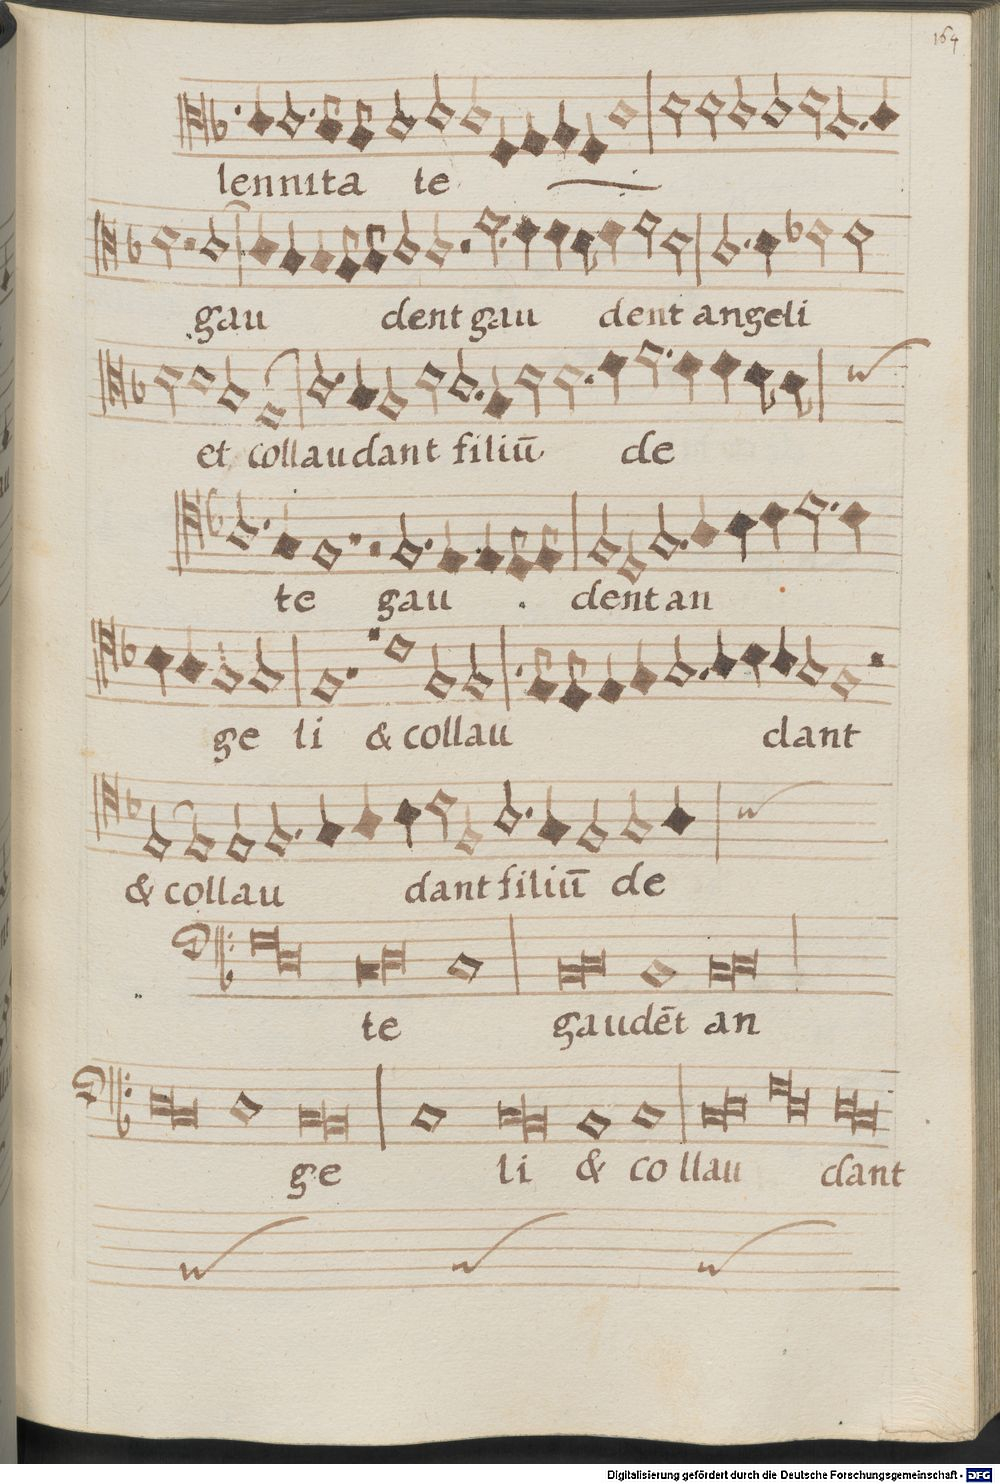 164
lennita te
gau dent gau dent angeli
et collaudant filiū de
te gau dent an
ge li & collau dant
& collau dant filiū de
te gaudēt an
ge li & co llau dant
Digitalisierung gefördert durch die Deutsche Forschungsgemeinschaft - DFG